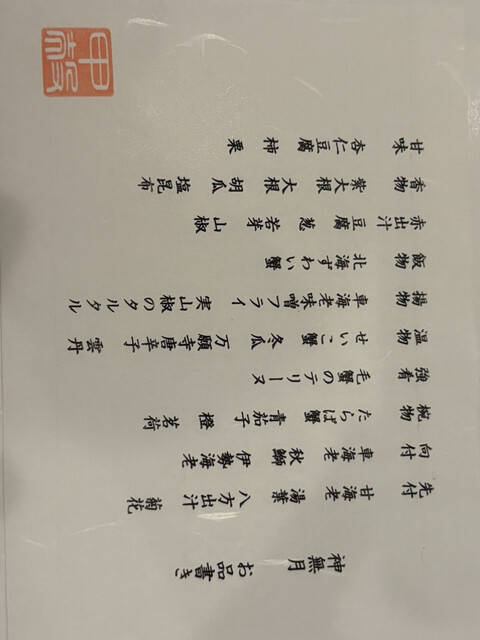 神無月 お品書き
先付 甘海老 湯葉 八方出汁 菊花
向付 車海老 秋鰤 伊勢海老
椀物 たらば蟹 青茄子 橙 茗荷
強肴 毛蟹のテリーヌ
温物 せいこ蟹 冬瓜 万願寺唐辛子 雲丹
揚物 車海老味噌フライ 実山椒のタルタル
飯物 北海ずわい蟹
赤出汁 豆腐 葱 若芽 山椒
香物 紫大根 大根 胡瓜 塩昆布
甘味 杏仁豆腐 柿 栗